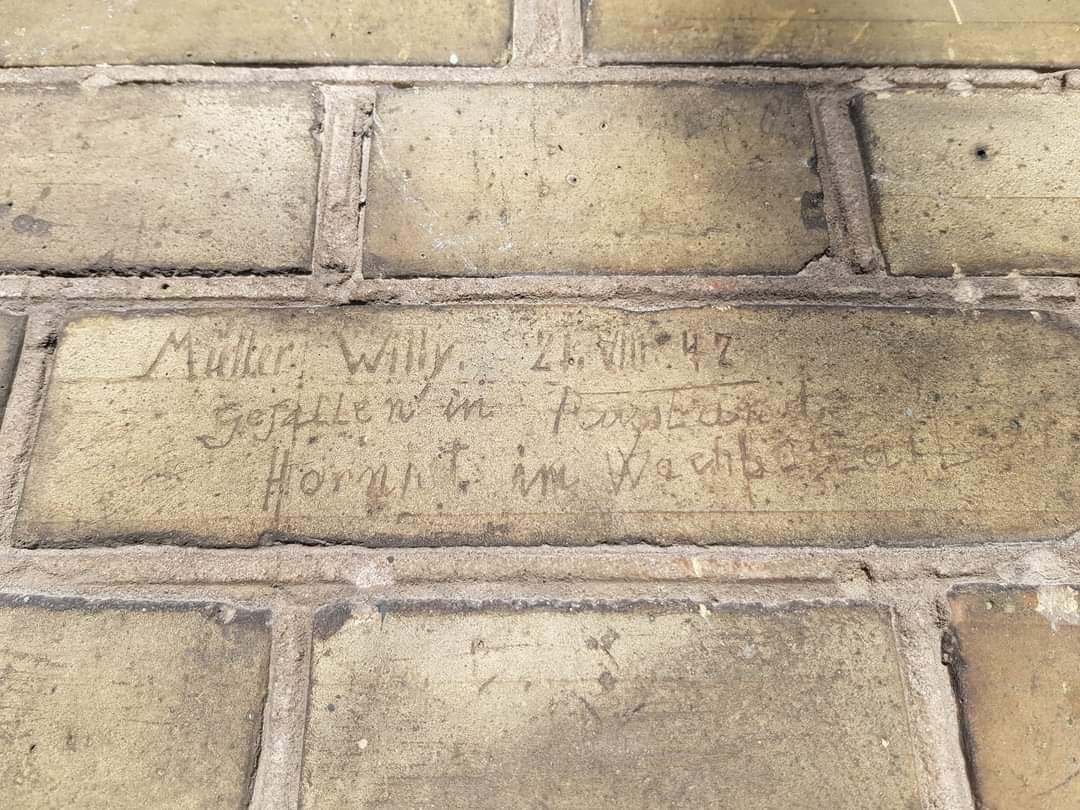 Müller. Willy. 21. VIII. 42
gefallen in Russland.
Hornist im Wachbattall